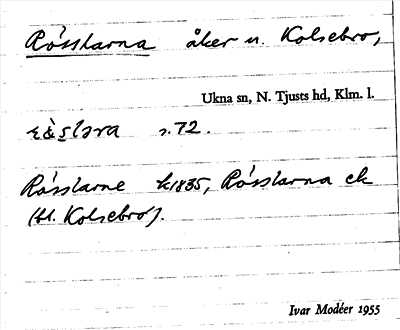 Rósslarna åker u. Kolsebro,
Ukna sn, N. Tjusts hd, Klm. l.
s. 72.
Rósslarne k1835, Rósslarna ek
(bl. Kolsebro).
Ivar Modéer 1955